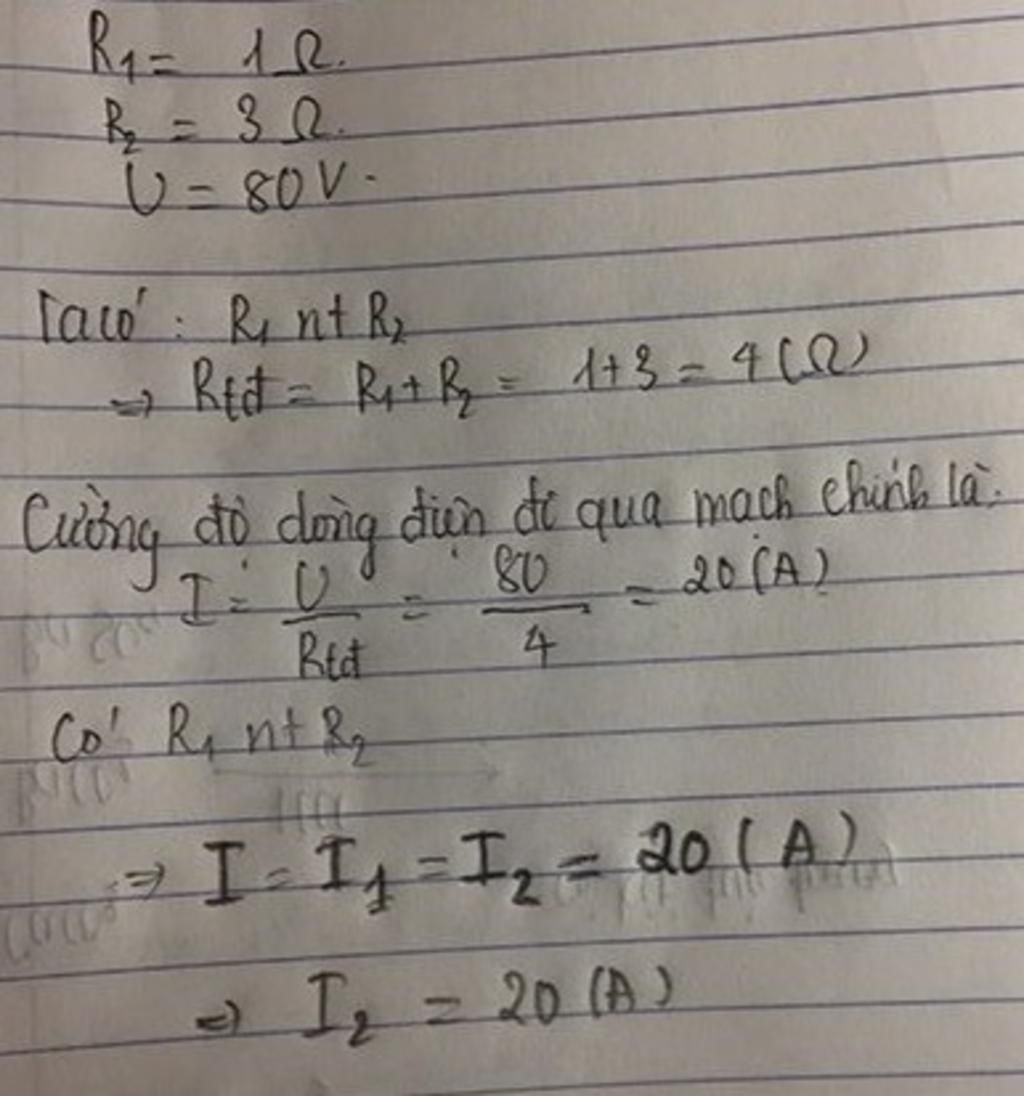 R₁ = 1 Ω.
R₂ = 3 Ω.
U = 80 V.
Ta có : R₁ nt R₂
⇒ Rtđ = R₁ + R₂ = 1+3 = 4 (Ω)
Cường độ dòng điện đi qua mạch chính là:
I = U/Rtđ = 80/4 = 20 (A)
Có R₁ nt R₂
⇒ I = I₁ = I₂ = 20 (A)
⇒ I₂ = 20 (A)